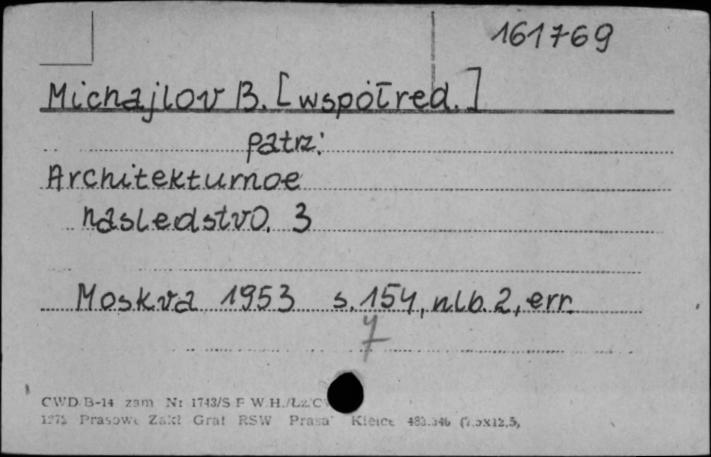 161769
Michajlov B. [współred.]
patrz:
Architekturnoe
nasledstvo. 3
Moskva 1953 s. 154, nlb. 2, err.
7
CWD/B-14 zam Nr 1743/S F W.H./Łz/C
Prasowe Zakł Graf RSW "Prasa" Kielce